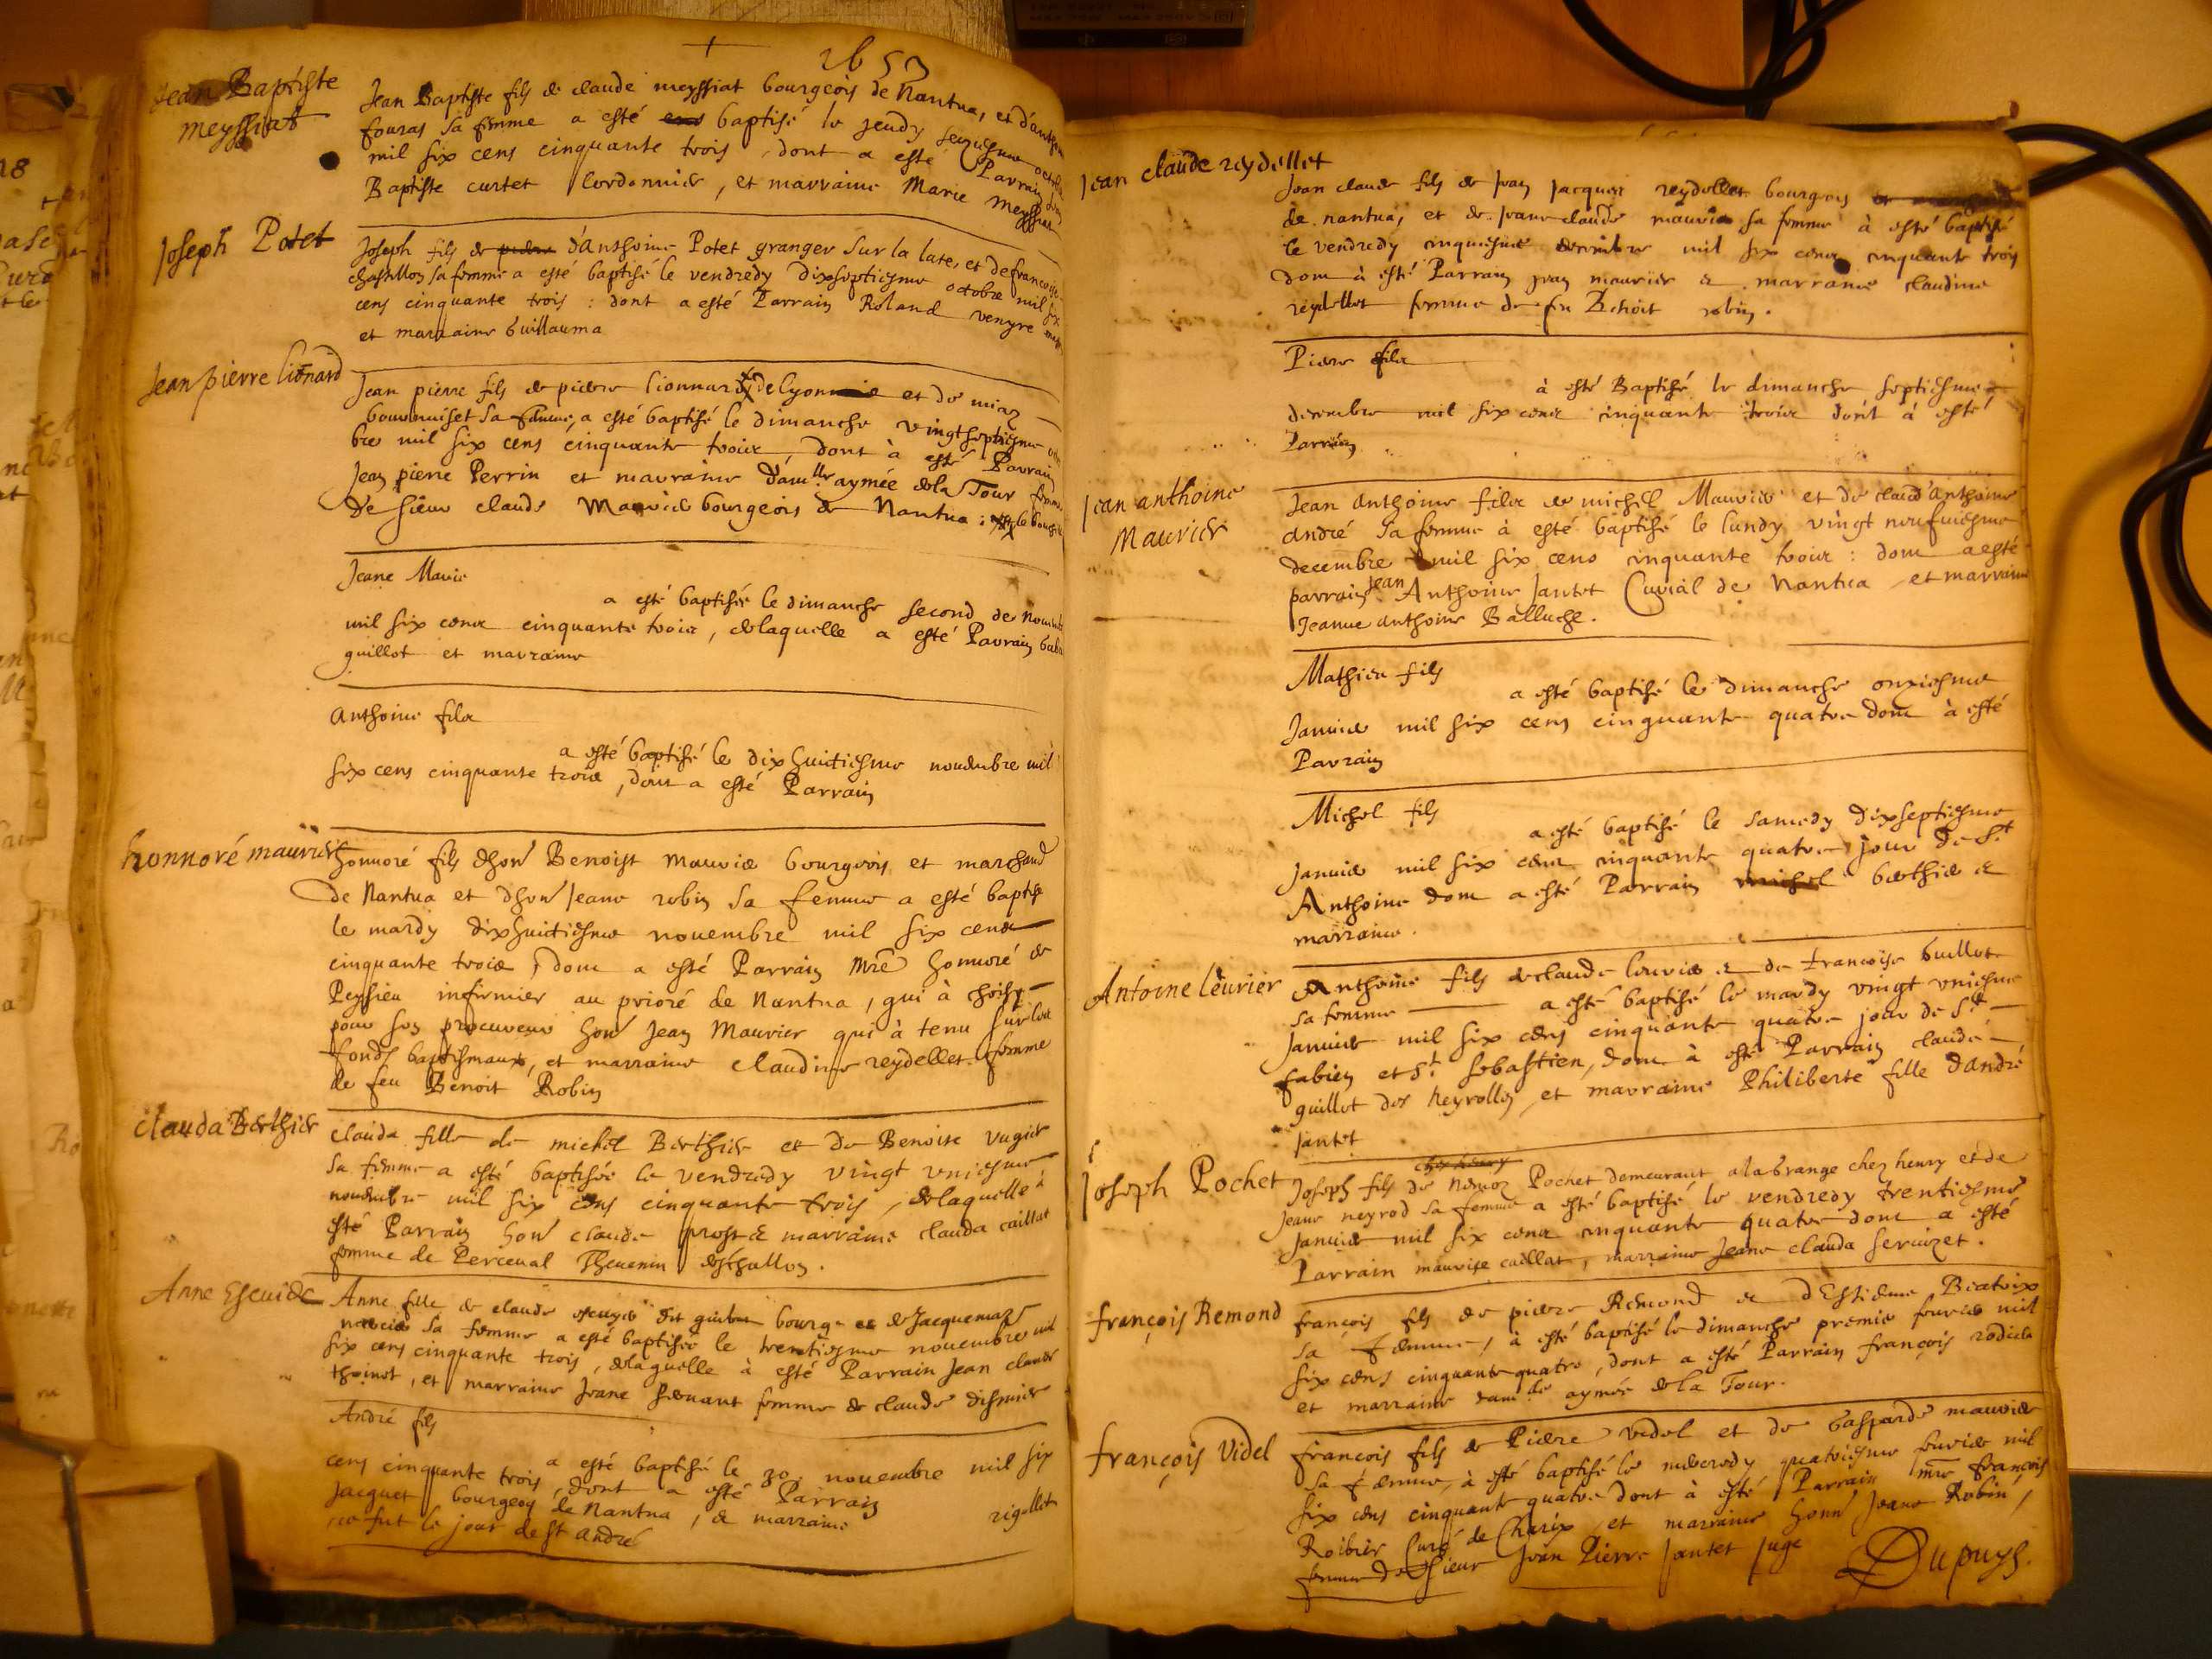 1653
Jean Baptiste
meyssiat
Jean Baptiste fils de claude meyssiat bourgeois de Nantua, et d'anth
fouras sa femme a esté baptisé le jeudy seiziesme octob
mil six cens cinquante trois, dont a esté Parrain
Baptiste curtet Cordonnier, et marraine Marie Meyssiat
Joseph Potet
Joseph fils de d'anthoine Potet granger sur la late, et de francoise
chastillon sa femme a esté baptisé le vendredy dixseptiesme octobre mil six
cens cinquante trois : dont a esté Parrain Roland venyre
et marraine Guillauma
Jean pierre lionard
Jean pierre fils de pierre lionnard de lyon et de
sa femme, a esté baptisé le dimanche vingtseptiesme
bre mil six cens cinquante trois, dont à esté Parrain
Jean pierre Perrin et marraine dam.lle aymée de la Tour femme
de sieur claude Maurier bourgeois de Nantua :
Jeane Marie
a esté baptisée le dimanche second de novemb
mil six cens cinquante trois, de laquelle a esté Parrain
guillot et marraine
Anthoine fils
a esté baptisé le dixhuictiesme novembre mil
six cens cinquante trois, dont a esté Parrain
honnoré maurier
honnoré fils dhon Benoist Maurier bourgeois et marchand
de Nantua et dhon Jeane robin sa femme a esté baptisé
le mardy dixhuictiesme novembre mil six cens
cinquante trois, dont a esté Parrain Mre honnoré de
Peyssieu infirmier au prioré de Nantua, qui à choisy
pour son procureur hon Jean Maurier qui à tenu sur les
fonds baptismaux, et marraine claudine reydellet femme
de feu Benoit Robin
clauda Berthier
clauda fille de michel Berthier et de Benoite vugier
sa femme a esté baptisée le vendredy vingt uniesme
novembre mil six cens cinquante trois, de laquelle à
esté Parrain hon claude prost & marraine clauda caillat
femme de Perceval Thevenin
Anne Escuier
Anne fille de claude escuyer dit bourg. de Jacquema
mercier sa femme a esté baptisée le trentiesme novembre mil
six cens cinquante trois, de laquelle à esté Parrain Jean claude
thoinet, et marraine Jeane femme de claude
André fils
a esté baptisé le 30. novembre mil six
cens cinquante trois, dont a esté Parrain rigollet
Jacquet bourgeois de Nantua, & marraine
ce fut le jour de St André
Jean claude reydellet
Jean claude fils de Jean Jacques reydellet bourgeois
de nantua, et de Jeane claude maurier sa femme à esté baptisé
le vendredy cinquiesme decembre mil six cens cinquante trois
dont à esté Parrain Jean maurier & marraine claudine
reydellet femme de feu Benoit robin.
Pierre fils
à esté Baptisé le dimanche septiesme
decembre mil six cens cinquante trois dont à esté
Parrain
Jean anthoine
Maurier
Jean anthoine fils de michel Maurier et de claud'anthoine
andré sa femme à esté baptisé le lundy vingt neufviesme
decembre mil six cens cinquante trois : dont a esté
parrain Jean Anthoine Jantet Curial de Nantua et marraine
Jeanne anthoine Balluche.
Mathieu fils
a esté baptisé le dimanche onziesme
Janvier mil six cens cinquante quatre dont à esté
Parrain
Michel fils
a esté baptisé le samedy dixseptiesme
Janvier mil six cens cinquante quatre jour de St
Anthoine dont a esté Parrain michel berthier &
marraine.
Antoine levrier
Anthoine fils de claude levrier & de francoise Guillot
sa femme a esté baptisé le mardy vingt uniesme
Janvier mil six cens cinquante quatre jour de St
fabien et St. sebastien, dont à esté Parrain claude
guillot des Neyrolles, et marraine Philiberte fille d'andré
Jantet
Joseph Pochet
chez henry
Joseph fils de Pochet demeurant a la Grange chez henry et de
Jeane neyrod sa femme a esté baptisé le vendredy trentiesme
Janvier mil six cens cinquante quatre dont a esté
Parrain maurise caillat, marraine Jeane clauda servizet.
françois Remond
françois fils de pierre Remond & d'Estienne Beatrix
sa femme, à esté baptisé le dimanche premier fevrier mil
six cens cinquante quatre, dont a esté Parrain françois
et marraine dam.lle aymée de la Tour.
françois Videl
francois fils de Pierre Videl et de Gasparde maurier
sa femme, à esté baptisé le mecredy quatriesme fevrier mil
six cens cinquante quatre dont à esté Parrain mre francois
Roibier Curé de Charix, et marraine honn. Jeane Robin,
femme de sieur Jean Pierre Jantet Juge
Dupuys.